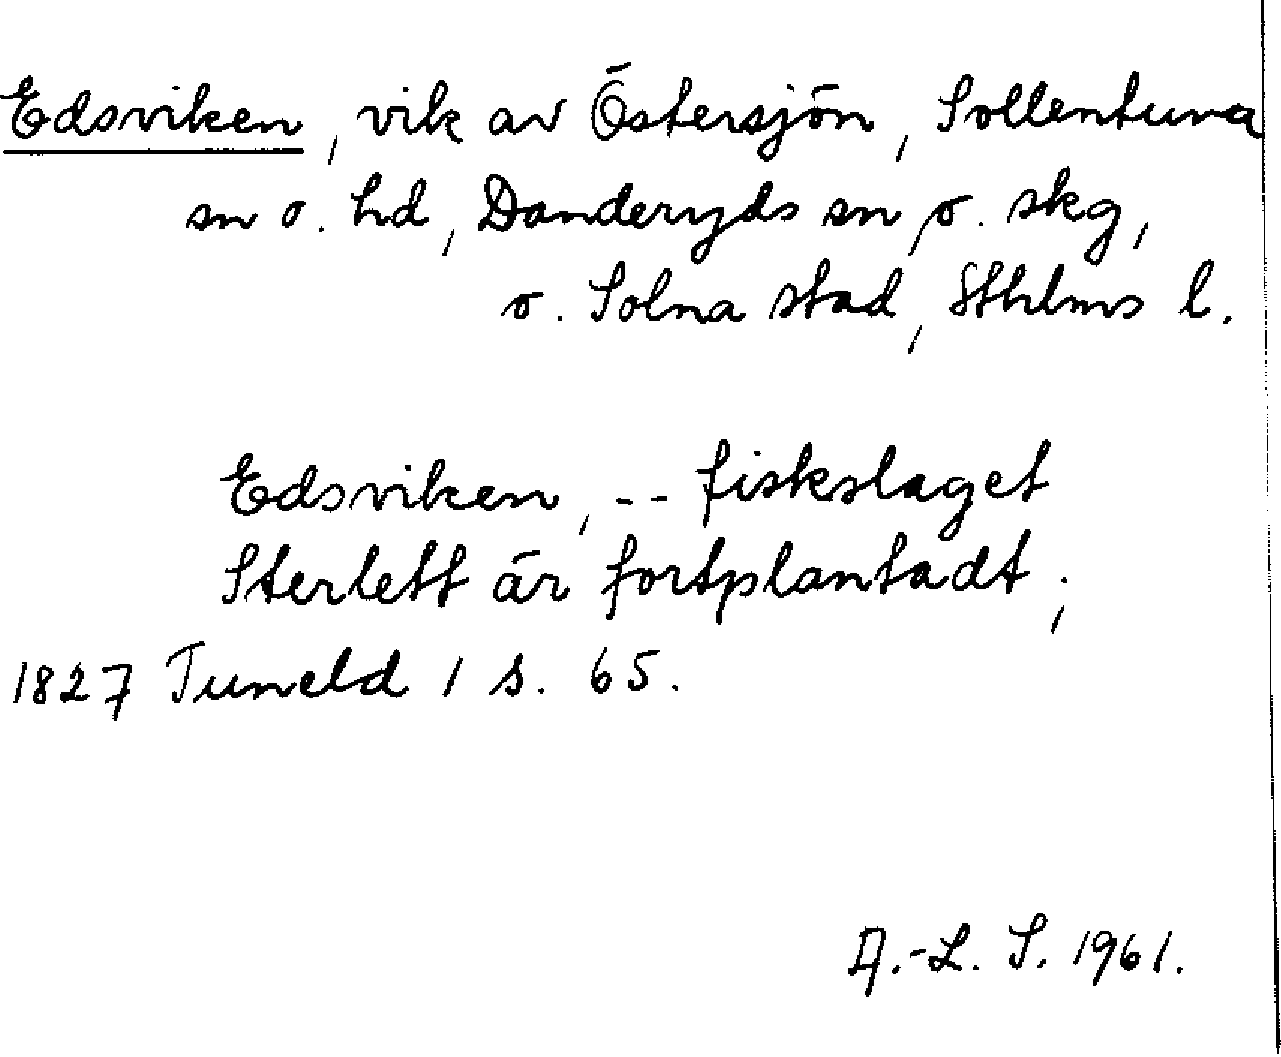 Edsviken, vik av Östersjön, Sollentuna
sn o. hd, Danderyds sn, o. skg,
o. Solna stad, Sthlms l.
Edsviken, -- fiskslaget
Sterlett är fortplantadt;
1827 Tuneld 1 s. 65.
A.-L. S. 1961.